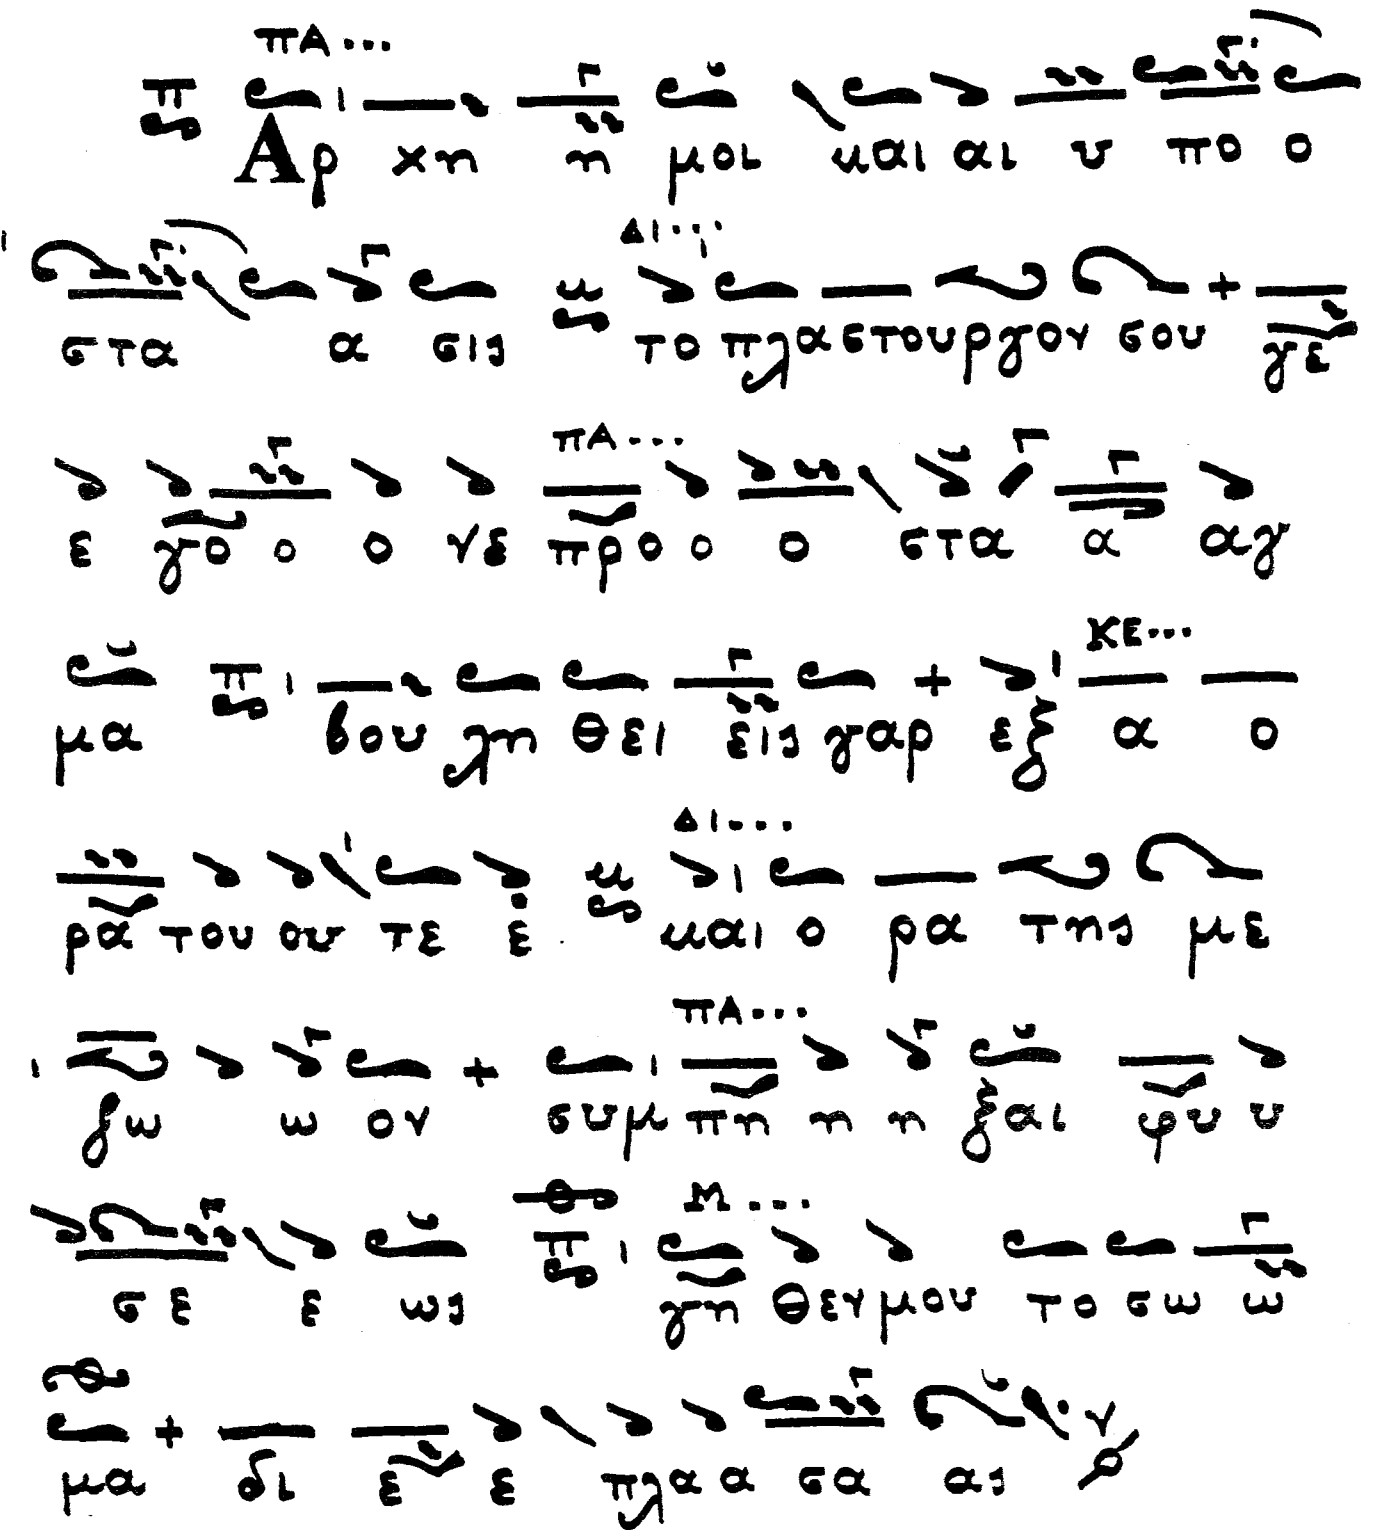 πΑ...
Αρ χη η μοι και αι υ πο ο
Δι...
στα α σις το πλαστουργον σου γε
πΑ...
ε γο ο ο νε προ ο ο στα α αγ
ΚΕ...
μα βου λη θει εις γαρ εξ α ο
Δι...
ρα του ου τε ε και ο ρα της με
πΑ...
ζω ω ον συμ πη η η ξαι φυ υ
Μ...
σε ε ως γη θεν μου το σω ω
μα δι ε ε πλα α σα ας